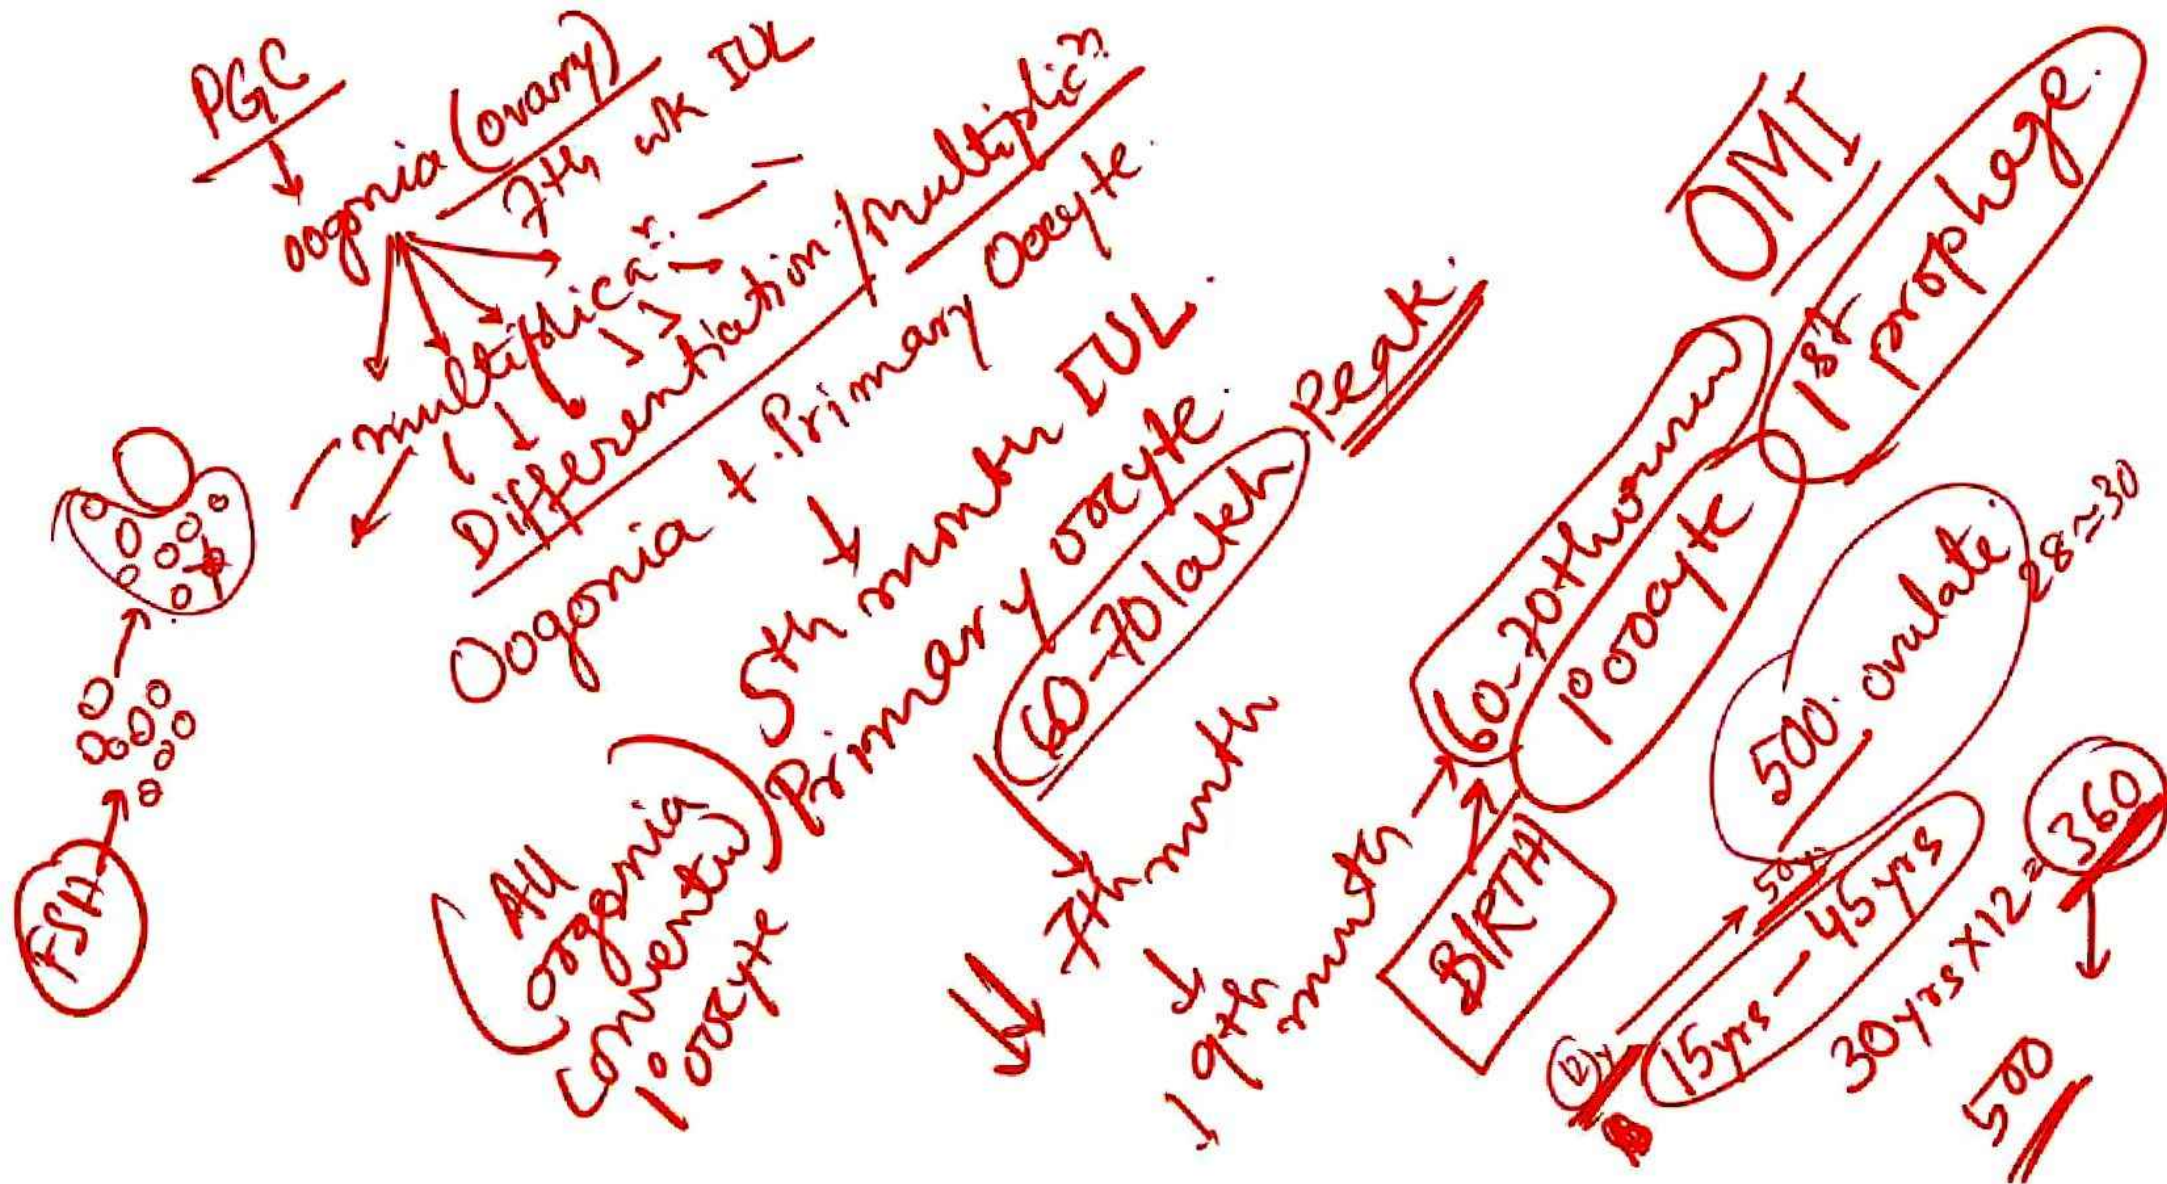 PGC
oogonia (ovary)
7th wk IUL
multiplicaⁿ.
Differentiation / Multiplicⁿ.
Oogonia + Primary Oocyte.
5th month IUL.
Primary oocyte.
60-70 lakh
Peak.
(All
oogonia
converted)
1° oocyte
7th month
9th
month
BIRTH
1° oocyte
OMI
1st prophage.
500. ovulate.
28 ≈ 30
12y
15yrs - 45yrs
30yrs × 12 = 360
500
FSH